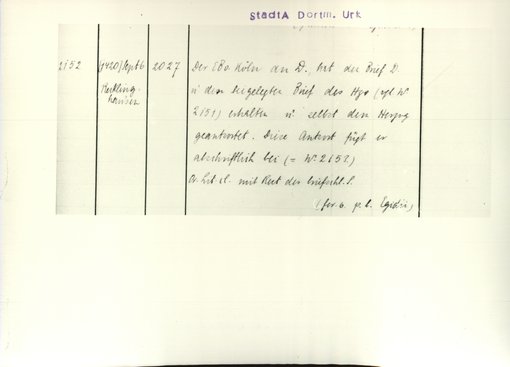 StadtA Dortm. Urk
2152 (1420) Sept 6 2027 Der EBv. Köln an D., hat den Brief D.
Reckling- u. den beigelegten Brief des Hgs (vgl. Nr
hausen 2151) erhalten u. selbst dem Herzog
geantwortet. Diese Antwort fügt er
abschriftlich bei (= Nr. 2153)
Or. lit. cl. mit Rest des briefschl. S.
(fer. 6. p. b. Egidii)